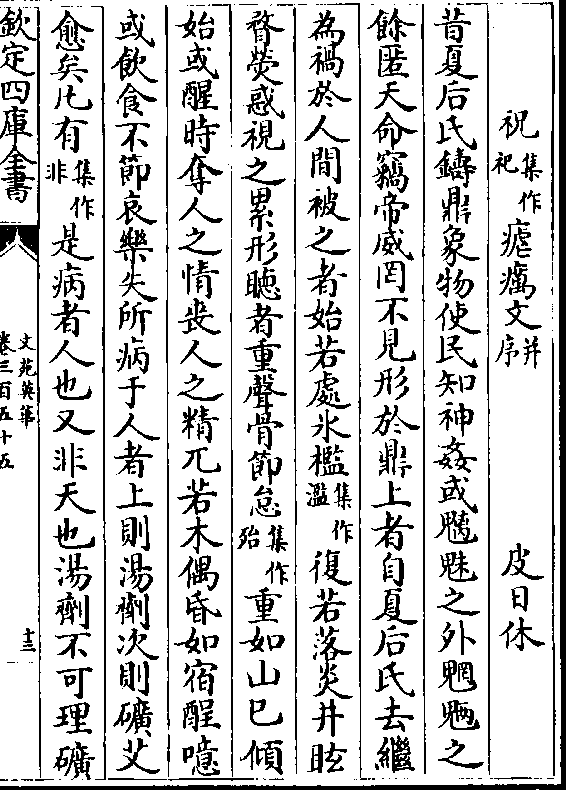 祝集作祀瘧癘文并序　皮日休
昔夏后氏鑄鼎象物使民知神姦或魑魅之外魍魎之
餘匿天命竊帝威罔不見形於鼎上者自夏后氏去繼
為禍於人間被之者始若處氷檻集作濫復若落炎井眩
瞀熒惑視之累形聽者重聲骨節怠集作殆重如山巳傾
始或醒時奪人之情喪人之精兀若木偶昏如宿酲噫
或飲食不節哀樂失所病于人者上則湯劑次則礦艾
愈矣凡有集作非是病者人也又非天也湯劑不可理礦
欽定四庫全書
文苑英華
卷三百五十五
十三